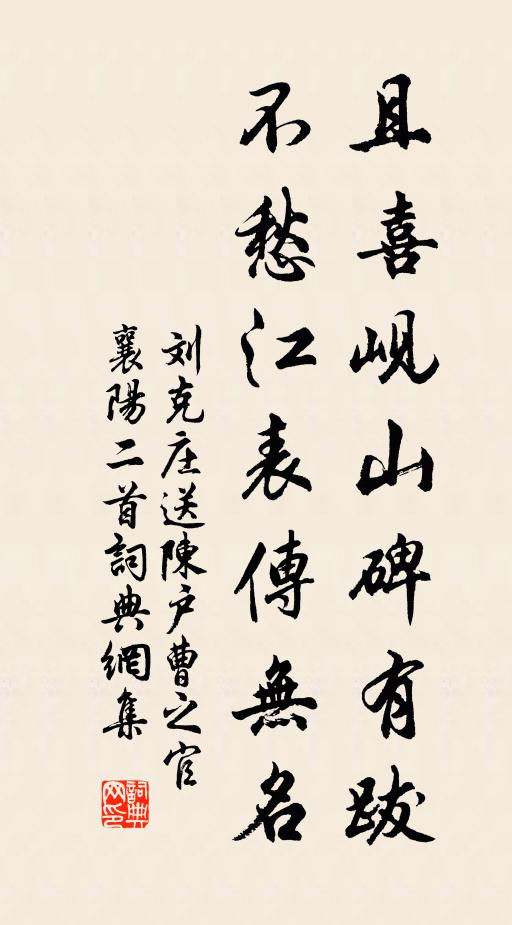 且喜岘山碑有跋
不愁江表傳無名
刘克庄送陳户曹之官
襄陽二首詞典網集
詞典
网印